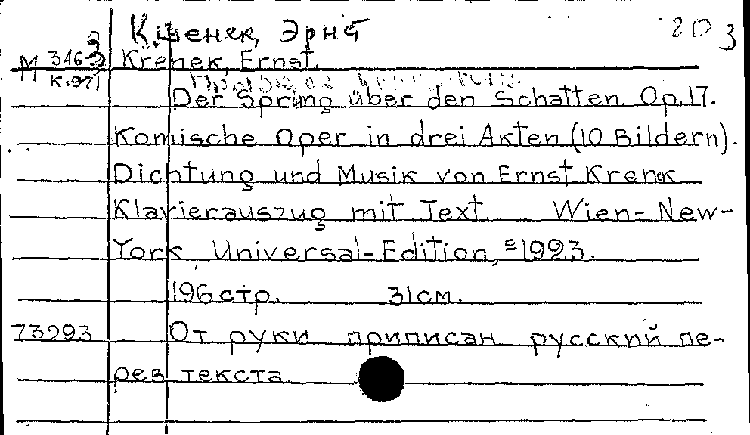 Кшенек, Эрнст 203
М 3463 Křenek, Ernst.
К.971
Der Spring über den Schatten Op.17.
Komische Oper in drei Akten (10 Bildern).
Dichtung und Musik von Ernst Krenek
Klavierauszug mit Text Wien-New-
York, Universal-Edition, c1923.
196 стр. 31 см.
73293 От руки приписан русский пе-
рев текста